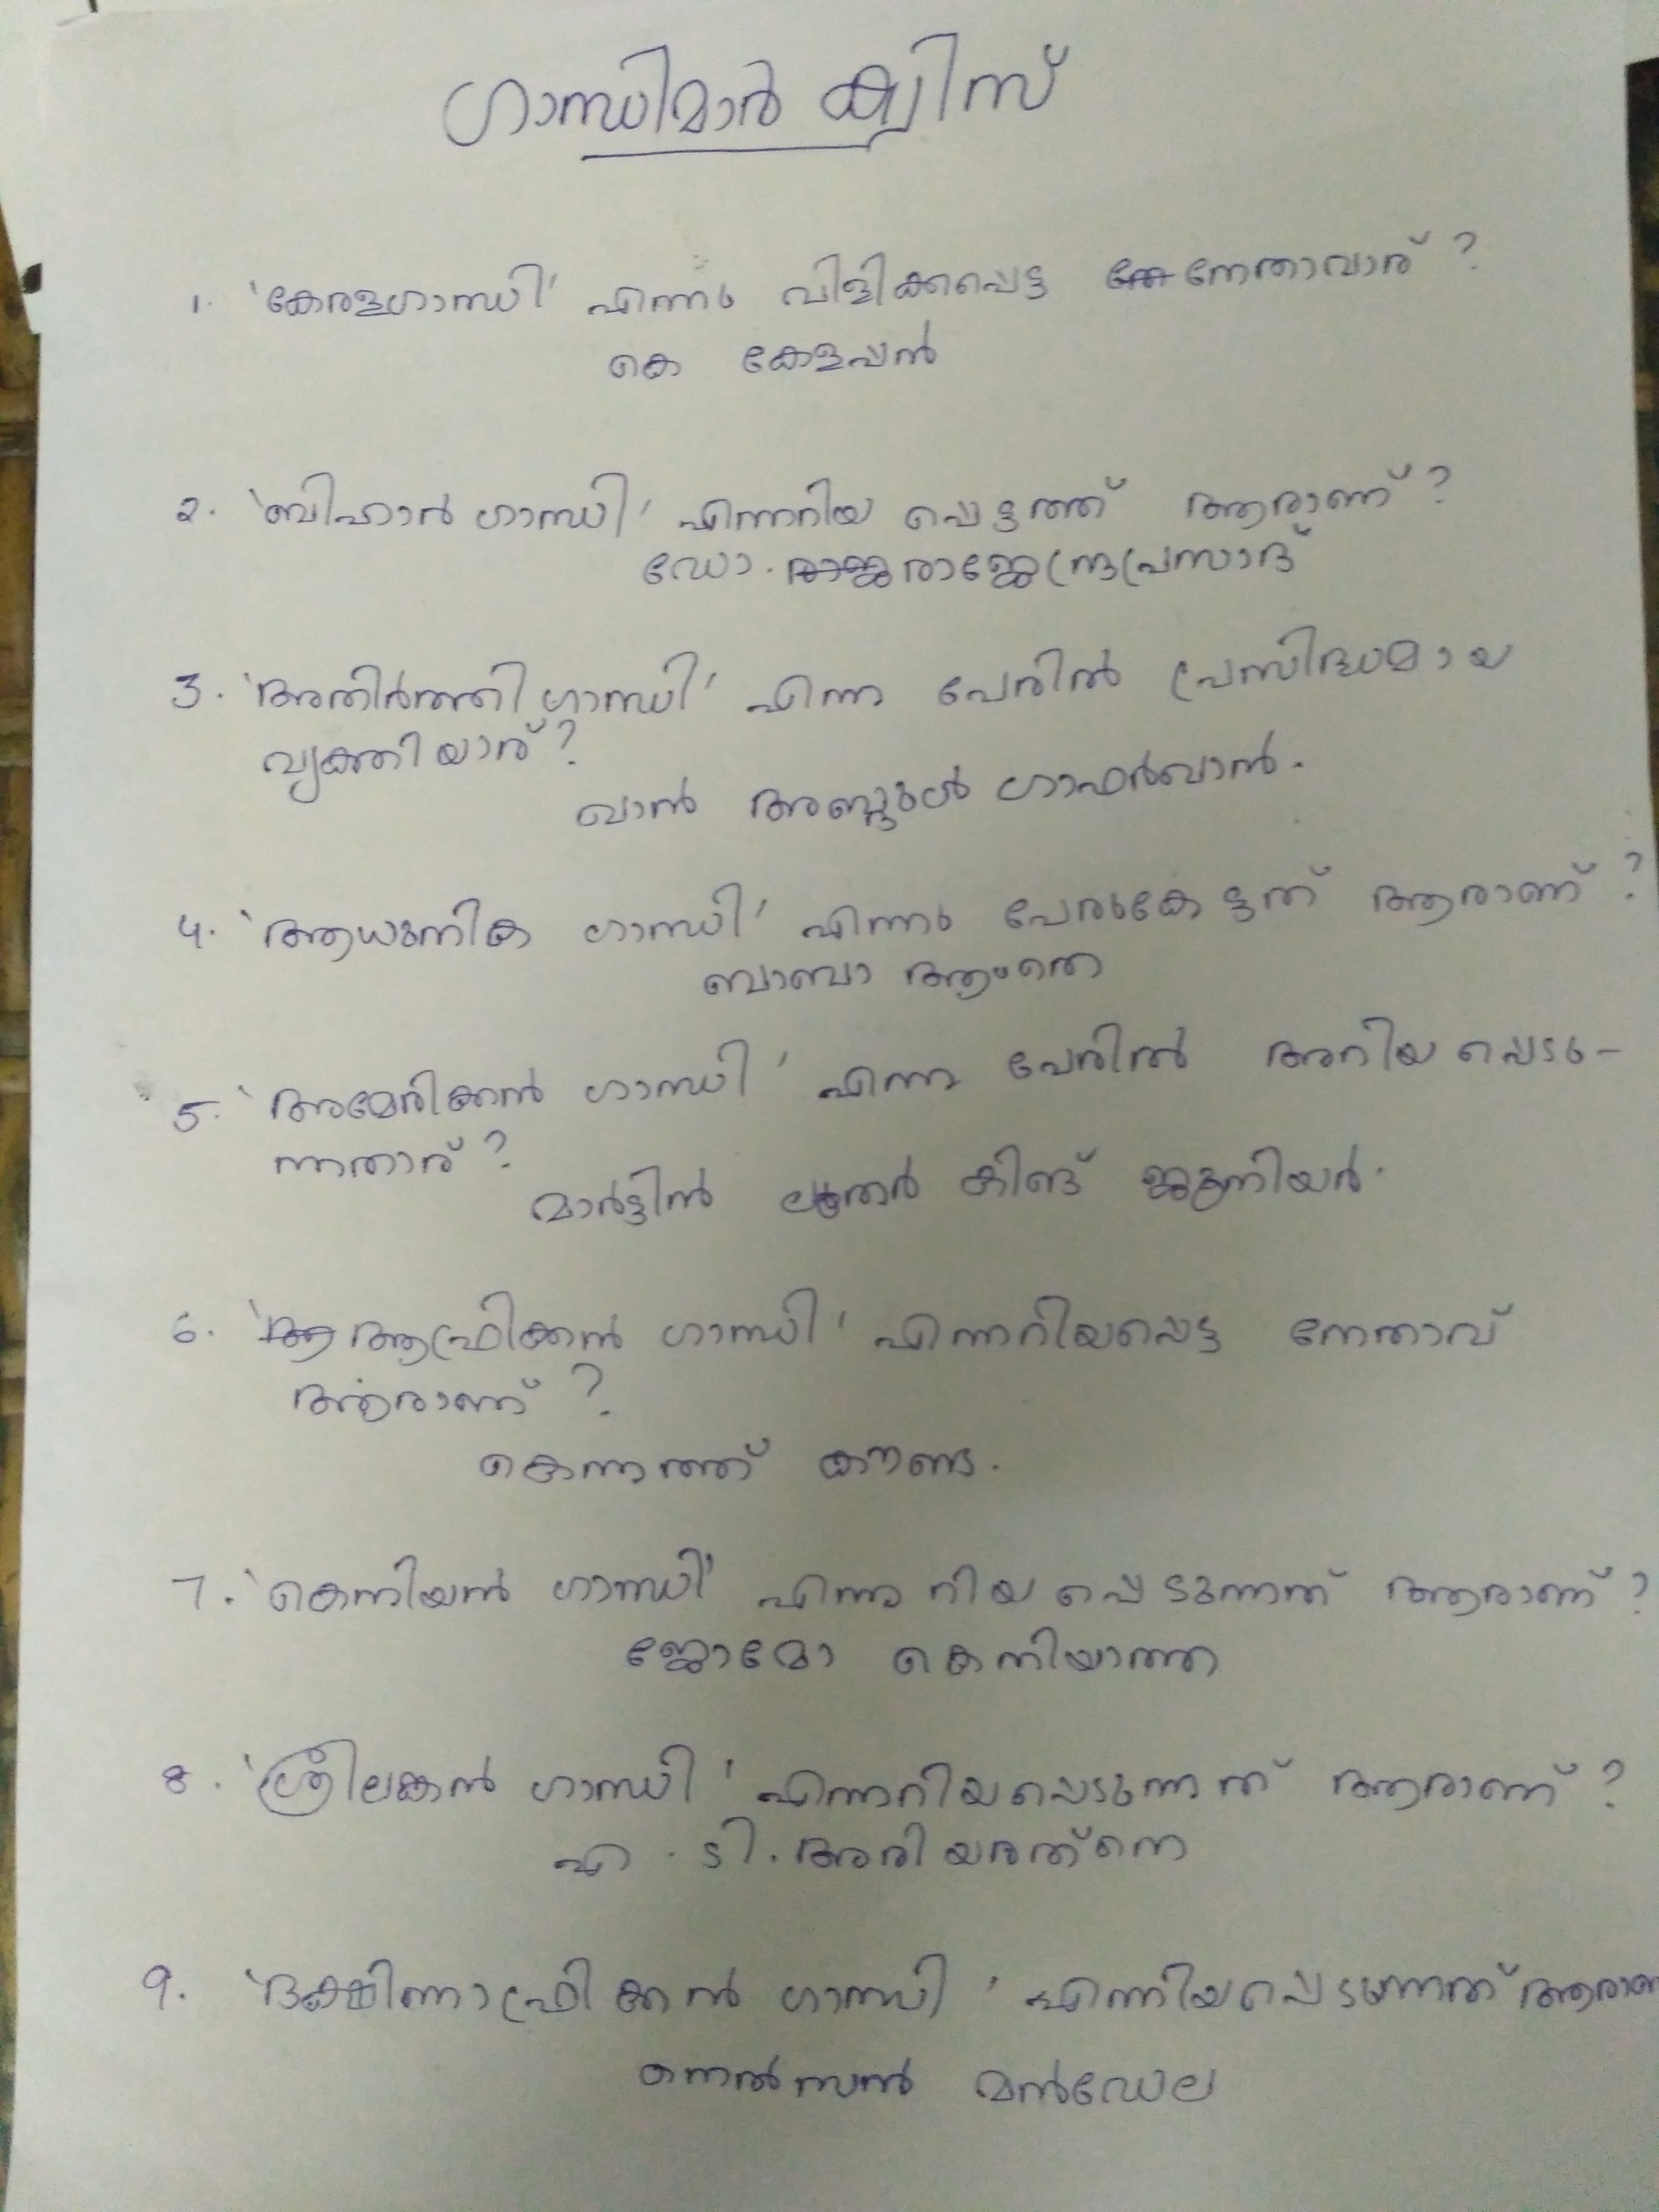 ഗാന്ധിമാർ ക്വിസ്
1. 'കേരളഗാന്ധി' എന്നു വിളിക്കപ്പെട്ട നേതാവാര്?
കെ കേളപ്പൻ
2. 'ബിഹാർ ഗാന്ധി' എന്നറിയ പ്പെട്ടത്ത് ആരാണ്?
ഡോ. രാജേന്ദ്രപ്രസാദ്
3. 'അതിർത്തി ഗാന്ധി' എന്ന പേരിൽ പ്രസിദ്ധമായ
വ്യക്തിയാര്?
ഖാൻ അബ്ദുൾ ഗാഫർഖാൻ.
4. 'ആധുനിക ഗാന്ധി' എന്നു പേരുകേട്ടത് ആരാണ്?
ബാബാ ആംതെ
5. 'അമേരിക്കൻ ഗാന്ധി' എന്ന പേരിൽ അറിയ പ്പെടു-
ന്നതാര്?
മാർട്ടിൻ ലൂതർ കിങ് ജൂനിയർ.
6. 'ആഫ്രിക്കൻ ഗാന്ധി' എന്നറിയപ്പെട്ട നേതാവ്
ആരാണ്?
കെന്നത്ത് കൗണ്ട.
7. 'കെനിയൻ ഗാന്ധി' എന്നറിയ പ്പെടുന്നത് ആരാണ്?
ജോമോ കെനിയാത്ത
8. 'ശ്രീലങ്കൻ ഗാന്ധി' എന്നറിയപ്പെടുന്നത് ആരാണ്?
എ. ടി. അരിയരത്നെ
9. 'ദക്ഷിണാഫ്രിക്കൻ ഗാന്ധി' എന്നിയപ്പെടുന്നത്
നെൽസൻ മൻഡേല